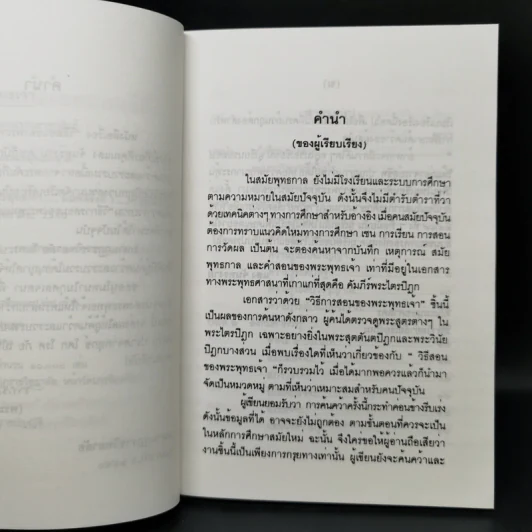 คำนำ
(ของผู้เรียบเรียง)
ในสมัยพุทธกาล ยังไม่มีโรงเรียนและระบบการศึกษา
ตามความหมายในสมัยปัจจุบัน ดังนั้นจึงไม่มีตำรับตำราที่ว่า
ด้วยเทคนิคต่างๆ ทางการศึกษาสำหรับอ้างอิง เมื่อคนสมัยปัจจุบัน
ต้องการทราบแนวคิดใหม่ทางการศึกษา เช่น การเรียน การสอน
การวัดผล เป็นต้น จะต้องค้นหาจากบันทึก เหตุการณ์ สมัย
พุทธกาล และคำสอนของพระพุทธเจ้า เท่าที่มีอยู่ในเอกสาร
ทางพระพุทธศาสนาที่เก่าแก่ที่สุดคือ คัมภีร์พระไตรปิฎก
เอกสารว่าด้วย "วิธีการสอนของพระพุทธเจ้า" ชิ้นนี้
เป็นผลของการค้นหาดังกล่าว ผู้ค้นได้ตรวจดูพระสูตรต่างๆ ใน
พระไตรปิฎก เฉพาะอย่างยิ่งในพระสุตตันตปิฎกและพระวินัย
ปิฎกบางส่วน เมื่อพบเรื่องใดที่เห็นว่าเกี่ยวข้องกับ " วิธีสอน
ของพระพุทธเจ้า "ก็รวบรวมไว้ เมื่อได้มากพอควรแล้วก็นำมา
จัดเป็นหมวดหมู่ ตามที่เห็นว่าเหมาะสมสำหรับคนปัจจุบัน
ผู้เขียนยอมรับว่า การค้นคว้าครั้งนี้กระทำค่อนข้างรีบเร่ง
ดังนั้นข้อมูลที่ได้ อาจจะยังไม่ถูกต้อง ตามขั้นตอนที่ควรจะเป็น
ในหลักการศึกษาสมัยใหม่ ฉะนั้น จึงใคร่ขอให้ผู้อ่านถือเสียว่า
งานชิ้นนี้เป็นเพียงการกรุยทางเท่านั้น ผู้เขียนยังจะค้นคว้าและ